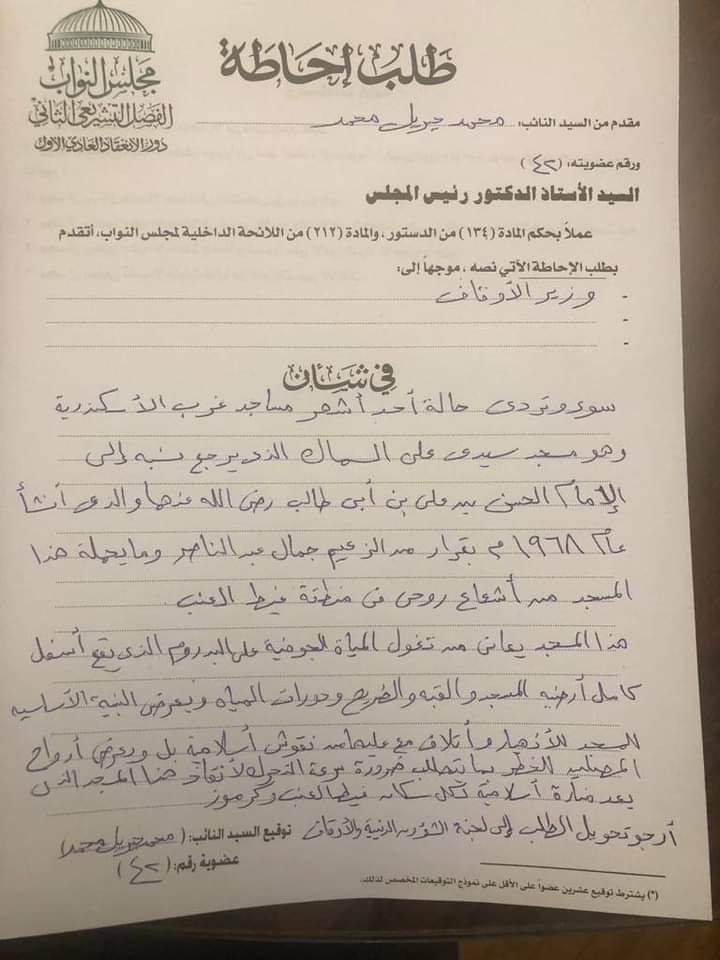 مجلس النواب
الفصل التشريعى الثانى
دور الانعقاد العادى الأول
طلب إحاطة
مقدم من السيد النائب: محمد جبريل محمد
ورقم عضويته: (٤٢)
السيد الأستاذ الدكتور رئيس المجلس
عملاً بحكم المادة (١٣٤) من الدستور، والمادة (٢١٢) من اللائحة الداخلية لمجلس النواب، أتقدم
بطلب الإحاطة الآتي نصه، موجهاً إلى:
- وزير الأوقاف
-
-
في شأن
سوء وتردى حالة أحد أشهر مساجد غرب الأسكندرية
وهو مسجد سيدى على السماك الذى يرجع نسبه إلى
الإمام الحسن بن على بن أبى طالب رضى الله عنهما والذى أنشأ
عام ١٩٦٨ م بقرار من الزعيم جمال عبد الناصر وما يحملة هذا
المسجد من أشعاع روحى فى منطقة غيط العنب.
هذا المسجد يعانى من تغول المياة الجوفية على البدروم الذى يقع أسفل
كامل أرضية المسجد والقبه والضريح ودورات المياه ويعرض البنية الأساسيه
للمسجد للأنهيار وأتلاف مع عليها من نقوش أسلامية بل ويعرض أرواح
المصليين للخطر بما يتطلب ضرورة سرعة التحرك لأنقاذ هذا المسجد الذى
يعد منارة أسلامية لكل سكان غيط العنب وكرموز
أرجو تحويل الطلب إلى لجنة الشؤون الدينية والأوقاف
توقيع السيد النائب: (محمد جبريل محمد)
عضوية رقم: (٤٢)
(*) يشترط توقيع عشرين عضواً على الأقل على نموذج التوقيعات المخصص لذلك.